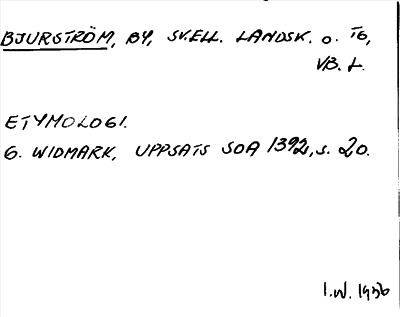 BJURSTRÖM, BY, SKELL. LANDSK. o. TG,
VB. L.
ETYMOLOGI.
G. WIDMARK, UPPSATS SOA 1392, s. 20.
I.W. 1956